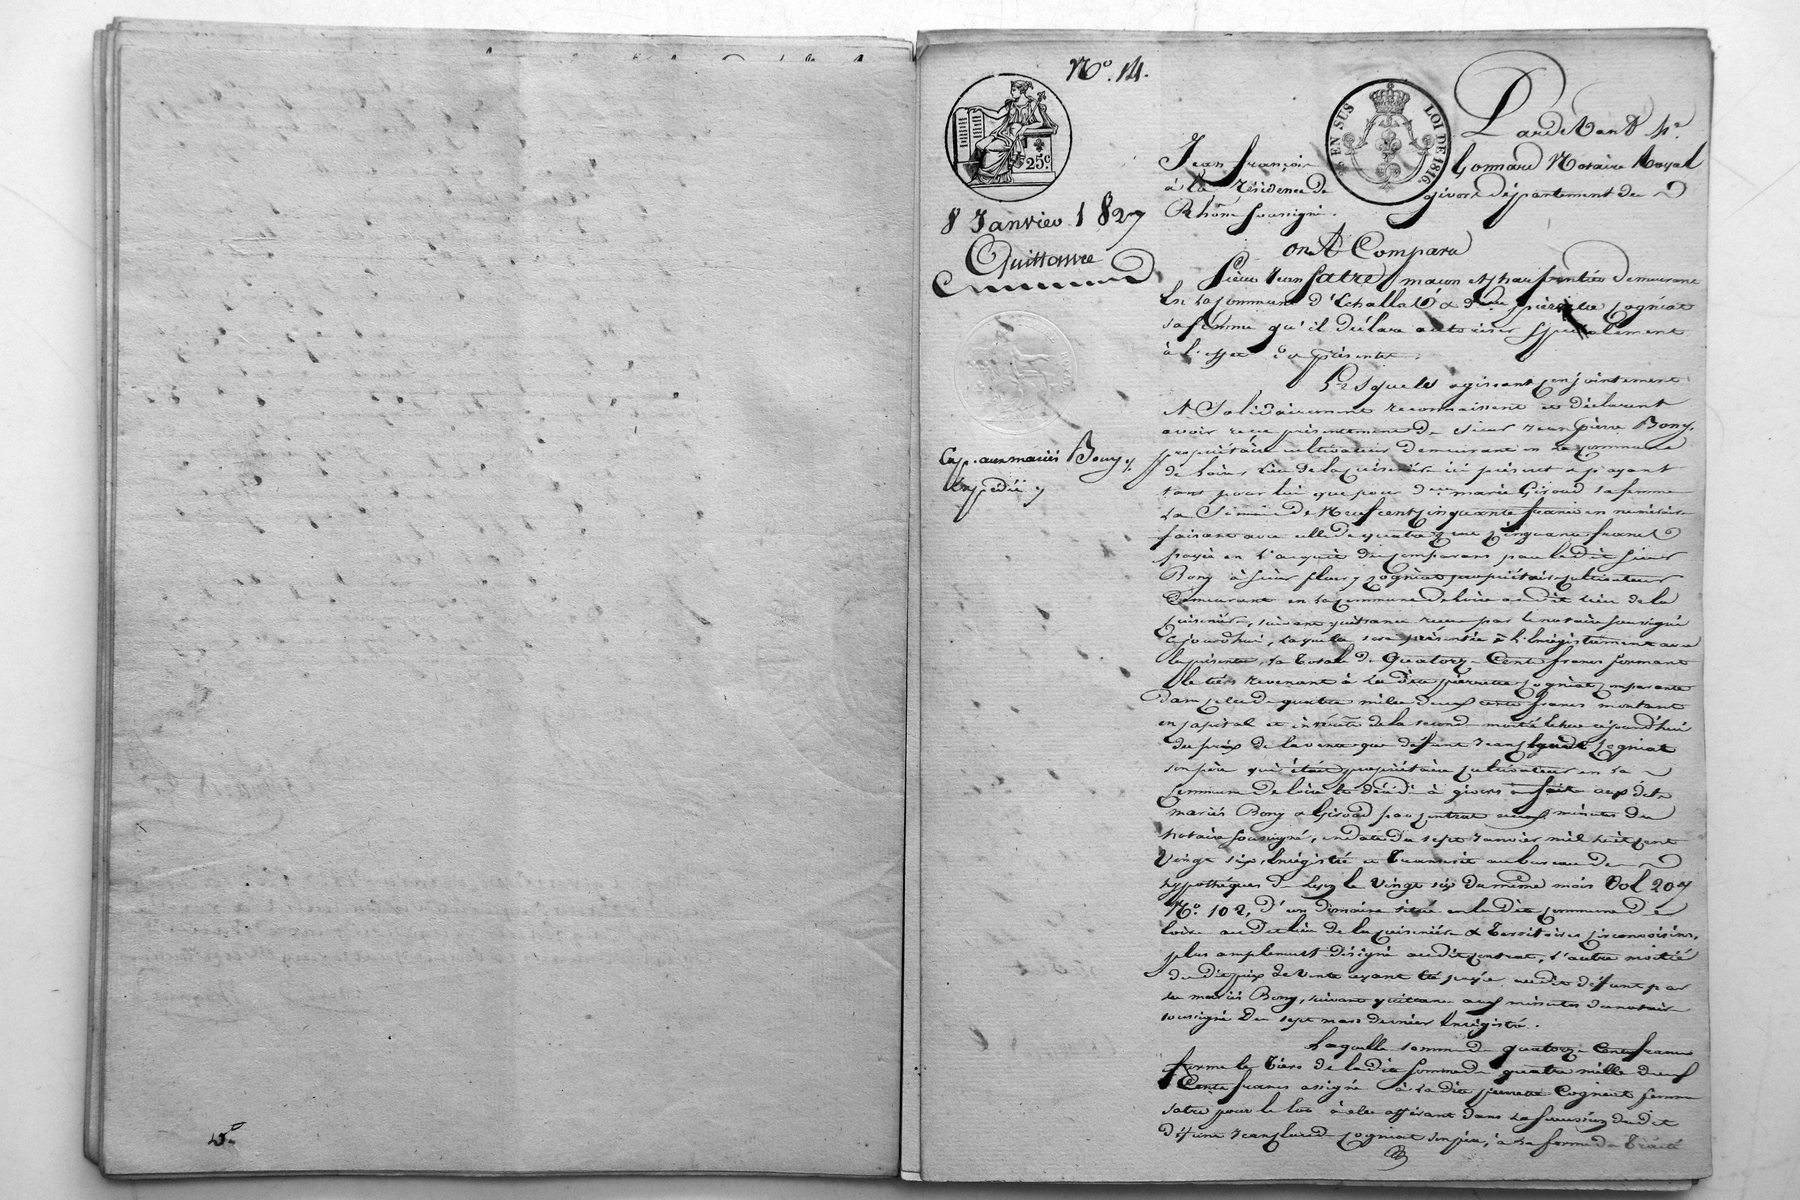 N.° 14.
25c
EN SUS LOI DE 1816.
8 Janvier 1827
Quittance
Exp. aux mariés Bony
Expédié
Pardevant M.e
Jean françois Gonnard Notaire Royal
à la Résidence de givors département du
Rhône soussigné.
ont Comparu
Sieur Jean Satre, maçon et charpentier demeurant
En la commune d'Echallas & d.e pierrette Cogniat
sa femme qu'il déclare autoriser Spécialement
à l'effet des présentes.
Lesquels agissant conjointement
et Solidairement reconnaissent et déclarent
avoir reçu présentement de sieur Jean pierre Bony,
propriétaire cultivateur demeurant en la commune
de Loire, lieu de la ici présent & payant
tant pour lui que pour d.e marie Giroud sa femme
La Somme de Neuf cent cinquante francs en numéraire
faisant avec celle de quatre cent cinquante francs
payée en l'acquit des comparans par le dit sieur
Bony à sieur fleury Cogniat propriétaire cultivateur
Demeurant en la Commune de Loire au dit lieu de la
suivant quittance reçue par le notaire soussigné
Cejourdhui, laquelle sera présentée à l'Enrégistrement avec
les présentes, la totale de Quatorze Cent francs formant
le tiers revenant à la dite pierrette Cogniat comparante
Dans celle de quatre mille deux cents francs montant
en capital et intérêts de la seconde moitié échue cejourd'hui
du prix de la vente que défunt Jean Cogniat
son père qui était propriétaire cultivateur en la
Commune de Loire & décédé à givors a faite aux dits
mariés Bony & Giroud par contrat aux minutes du
notaire soussigné, en date du sept Janvier mil huit cent
Vingt six, Enrégistré et Transcrit au bureau des
hypothèques de Lyon le vingt six du même mois Vol 207
N.° 102, D'un domaine situé en la dite commune de
Loire au dit lieu de la & Territoires circonvoisins,
plus amplement désigné au dit contrat, l'autre moitié
du dit prix de vente ayant été payée au dit défunt par
les mariés Bony, suivant quittance aux minutes du notaire
soussigné du sept mars dernier Enrégistré.
Laquelle somme de quatorze Cent francs
forme le tiers de la dite somme de quatre mille deux
Cents francs assigné à la dite pierrette Cogniat femme
Satre pour le lot à elle afférant dans la succession du dit
défunt Jean Cogniat son père, à la forme du Traité